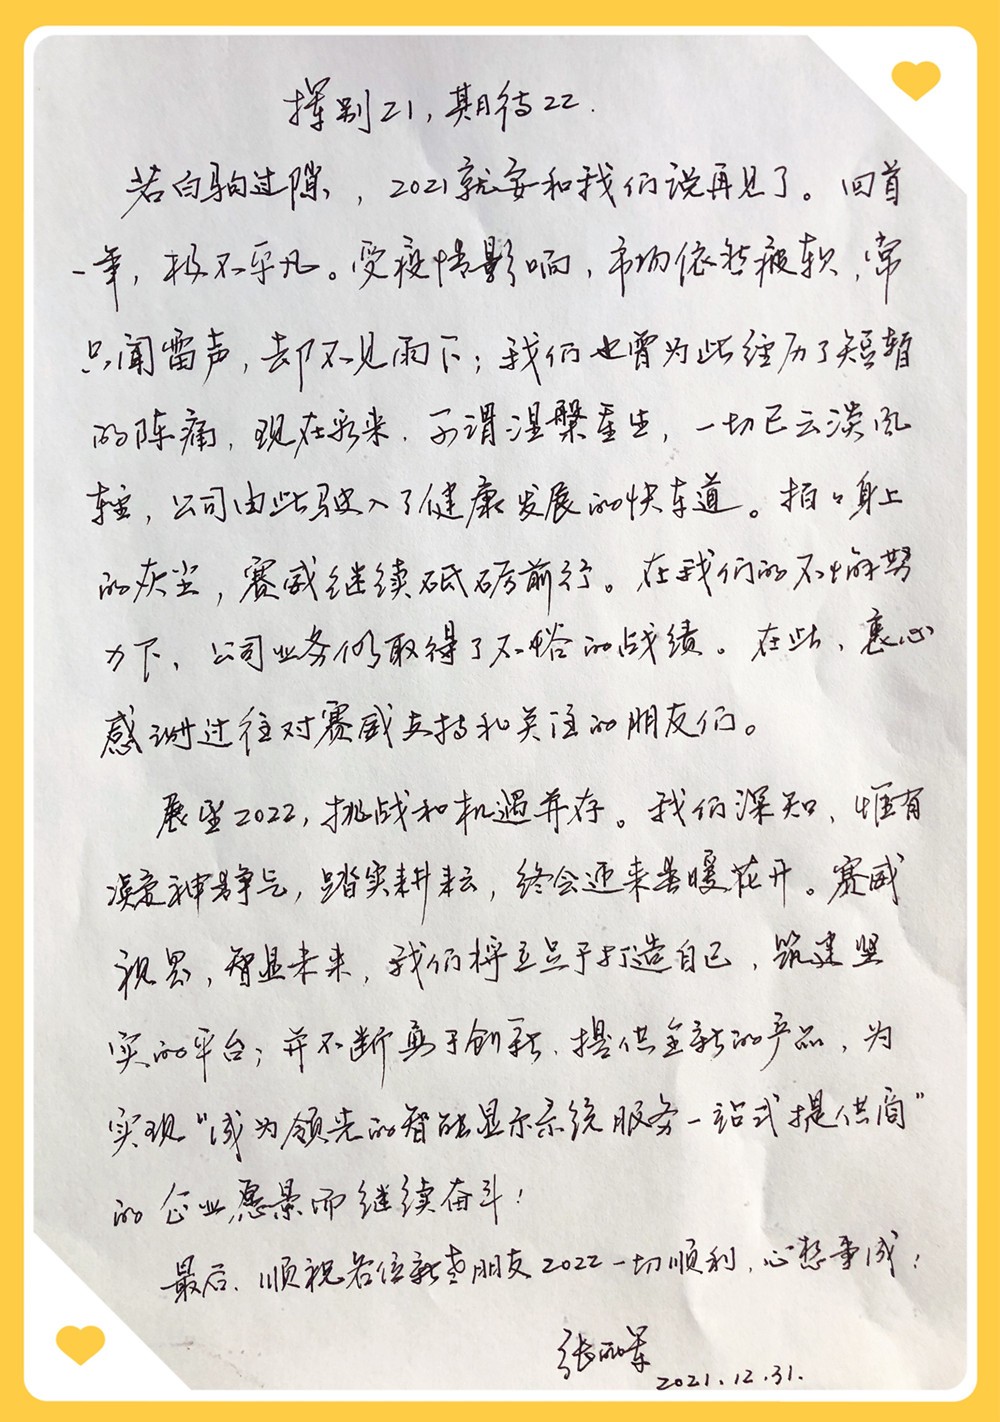 挥别21，期待22.
若白驹过隙，2021就要和我们说再见了。回首
一年，极不平凡。受疫情影响，市场依然疲软，常
只闻雷声，却不见雨下；我们也曾为此经历了短暂
的阵痛，现在看来，可谓涅槃重生，一切已云淡风
轻，公司由此驶入了健康发展的快车道。拍拍身上
的灰尘，赛威继续砥砺前行。在我们的不懈努
力下，公司业务仍取得了不俗的战绩。在此，衷心
感谢过往对赛威支持和关注的朋友们。
展望2022，挑战和机遇并存。我们深知，惟有
凝神静气，踏实耕耘，终会迎来春暖花开。赛威
视界，智显未来，我们将立足于打造自己，筑建坚
实的平台；并不断勇于创新，提供全新的产品，为
实现“成为领先的智能显示系统服务一站式提供商”
的企业愿景而继续奋斗！
最后，顺祝各位新老朋友2022一切顺利，心想事成！
张
2021.12.31.